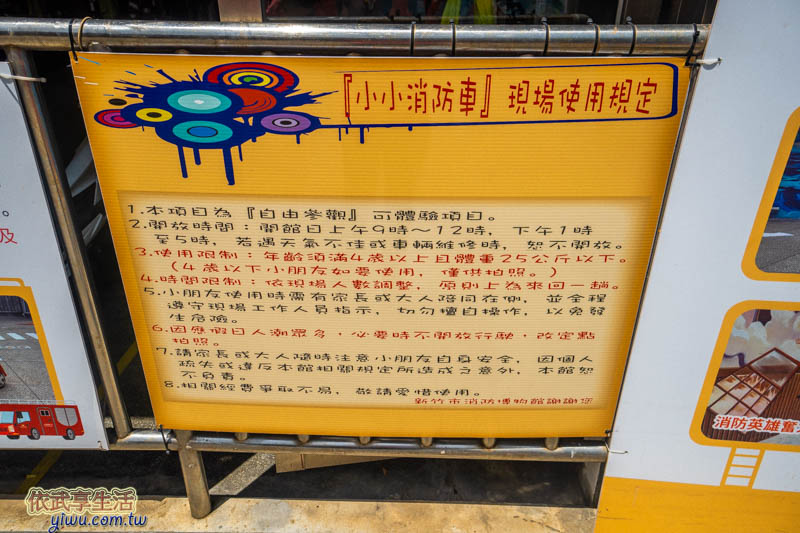 『小小消防車』現場使用規定
1.本項目為『自由參觀』可體驗項目。
2.開放時間：開館日上午9時～12時，下午1時
至5時，若遇天氣不佳或車輛維修時，恕不開放。
3.使用限制：年齡須滿4歲以上且體重25公斤以下。
(4歲以下小朋友如要使用，僅供拍照。)
4.時間限制：依現場人數調整，原則上為來回一趟。
5.小朋友使用時需有家長或大人陪同在側，並全程
遵守現場工作人員指示，切勿擅自操作，以免發
生危險。
6.因應假日人潮眾多，必要時不開放行駛，改定點
拍照。
7.請家長或大人隨時注意小朋友自身安全，因個人
疏失或違反本館相關規定所造成之意外，本館恕
不負責。
8.相關經費爭取不易，敬請愛惜使用。
新竹市消防博物館謝謝您
。
及
消防英雄奮
依武享生活
yiwu.com.tw